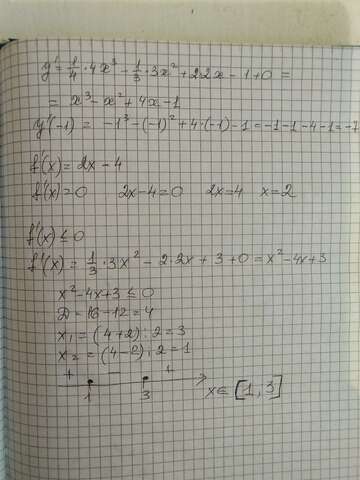 y' = 1/4 · 4x³ - 1/3 · 3x² + 2·2x - 1 + 0 =
= x³ - x² + 4x - 1
y'(-1) = -1³ - (-1)² + 4·(-1) - 1 = -1 - 1 - 4 - 1 = -7
f'(x) = 2x - 4
f'(x) = 0 2x - 4 = 0 2x = 4 x = 2
f'(x) ≤ 0
f'(x) = 1/3 · 3x² - 2·2x + 3 + 0 = x² - 4x + 3
x² - 4x + 3 ≤ 0
D = 16 - 12 = 4
x₁ = (4+2) : 2 = 3
x₂ = (4-2) : 2 = 1
+ - +
1 3 x ∈ [1, 3]